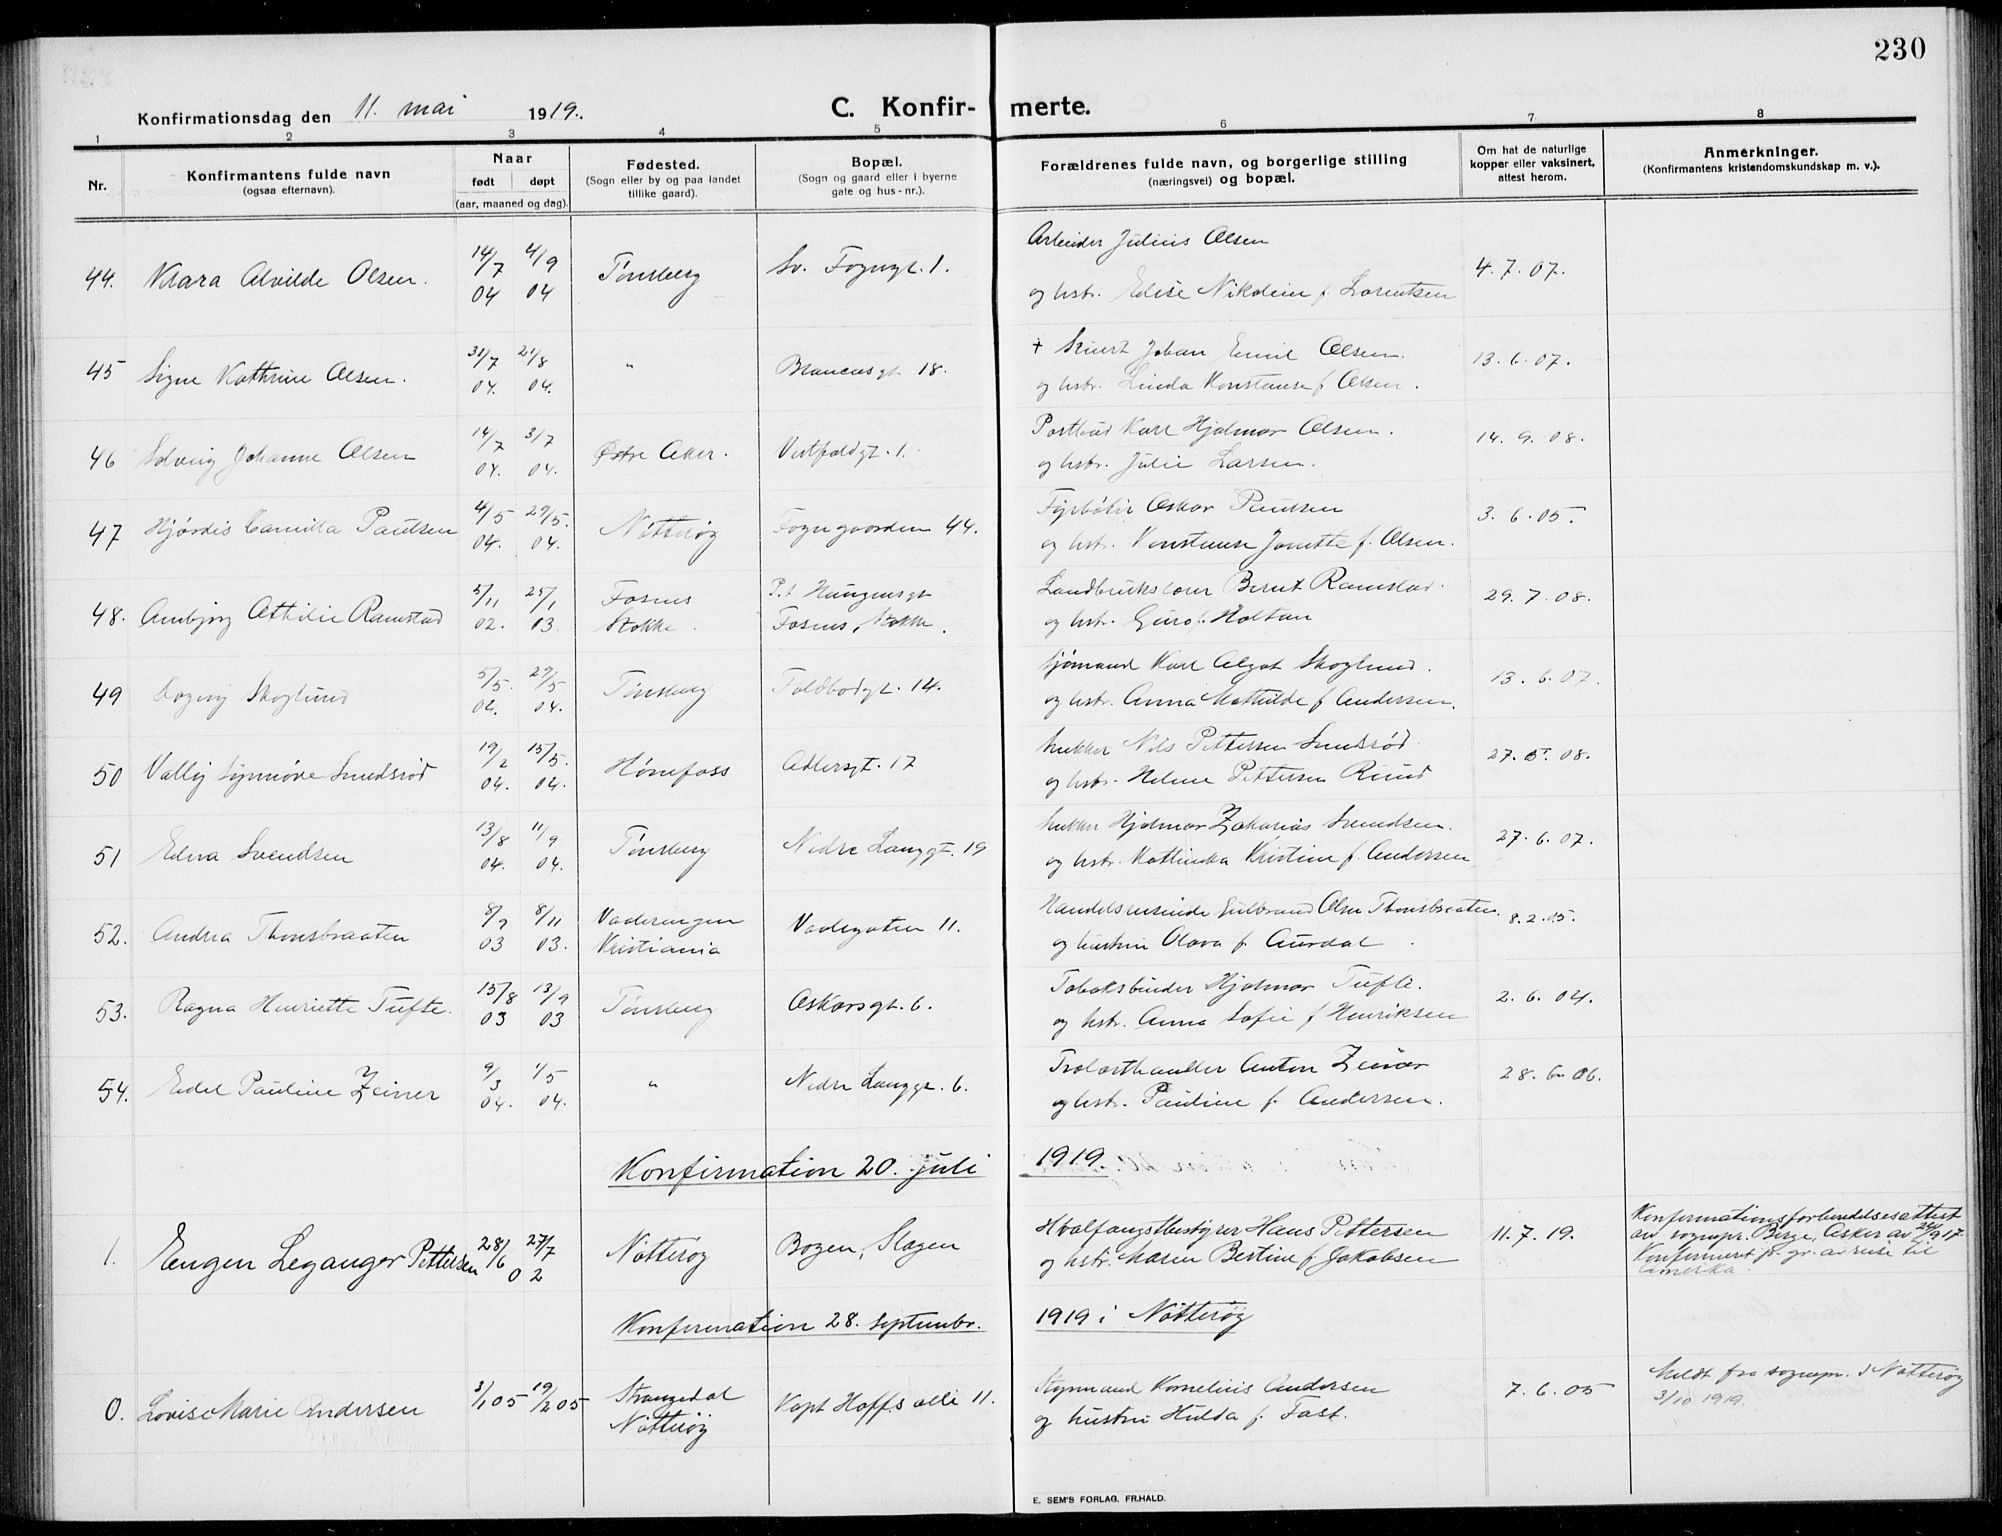 230
Konfirmationsdag den 11. mai 1919.
C. Konfir- merte.
1 2 3 4 5 6 7 8
Nr.
Konfirmantens fulde navn
(ogsaa efternavn).
Naar
født døpt
(aar, maaned og dag).
Fødested.
(Sogn eller by og paa landet
tillike gaard).
Bopæl.
(Sogn og gaard eller i byerne
gate og hus-nr.).
Forældrenes fulde navn, og borgerlige stilling
(næringsvei) og bopæl.
Om hat de naturlige
kopper eller vaksinert,
attest herom.
Anmerkninger.
(Konfirmantens kristendomskundskap m. v.).
44. Klara Alvilde Olsen. 14/7 04 4/9 04 Tønsberg Sv. Foynsgt. 1.
Arbeider Julius Olsen
og hstr. Edise Nikoline f. Lorentsen
4.7.07.
45 Signe Kathrine Olsen. 31/7 04. 21/8 04. " 18.
+ Johan Emil Olsen.
og hstr. Linda Konstanse f. Olsen.
13.6.07.
46 Solveig Johanne Olsen 14/7 04. 3/7 04. Østre Aker. Vestfoldgt. 1.
Postbud Karl Hjalmar Olsen.
og hstr. Julie Larsen.
14.9.08.
47 Hjørdis Camilla Paulsen 4/5 04. 29/5. 04. Nøtterøy Foyngaarden 44.
Fyrbøter Oskar Paulsen
og hstr. Konstanse Janette f. Olsen.
3.6.05.
48. Ambjørg Ottilie Ramstad 5/11 02. 25/1 03 Fosnes
Stokke. P.t Haugensgt
Fosnes, Stokke.
Landbrukslærer Bernt Ramstad.
og hstr. Guro f. Holtan
29.7.08.
49 Dagny Skoglund 5/5. 04. 29/5 04. Tønsberg Toldbodgt. 14.
Sjømand Karl Algot Skoglund.
og hstr. Anna Mathilde f Andersen.
13.6.07.
50 Vally Synnøve Sundsrød 19/2 04. 15/5. 04. Hønefoss Adlersgt. 17
Snekker Nils Pettersen Sundsrød.
og hstr. Helene Pettersen Ruud
27.5.08.
51 Edna Svendsen 13/8 04. 11/9 04. Tønsberg Nedre Langgt. 19
Snekker Hjalmar Zakarias Svendsen.
og hstr. Kathinka Kristine f. Andersen
27.6.07.
52. Andrea Thonsbraaten 8/9 03 8/11 03. Vaalerengen
Kristiania Vadegaten 11.
Handelsreisende Gulbrand Olsen Thonsbraaten.
og hustru Olava f. Aurdal.
8.2.05.
53. Ragna Henriette Tufte. 15/8 03 13/9 03 Tønsberg Oskarsgt. 6.
Tobaksbinder Hjalmar Tufte.
og hstr. Anna Sofie f Henriksen
2.6.04.
54. Edel Pauline Zeiner 9/3 04. 1/5 04. " Nedre Langgt. 6.
Trælasthandler Anton Zeiner
og hstr. Pauline f. Andersen.
28.6.06.
Konfirmation 20. juli 1919
1. Eugen Leganger Pettersen 28/6 27/7 02 Nøtterøy Bogen, Slagen
Hvalfangstbestyrer Hans Pettersen
og hstr. Maren Bertine f Jakobsen
11.7.19.
Konfirmationsforberedelsesattest
av sognepr. Berge, Asker av 24/9 17.
Konfirmert pr. gr. av reise til
Amerika.
Konfirmation 28. septembr. 1919 i Nøtterøy
0. Lovise Marie Andersen 3/1 05 19/2 05 Strangedal
Nøtterøy Kapt Hoffs alle 11.
Styrmand Kornelius Andersen
og hustru Hulda f. Fast.
7.6.05
Meldt fra sognepr. i Nøtterøy
3/10 1919.
E. SEM'S FORLAG, FR.HALD.